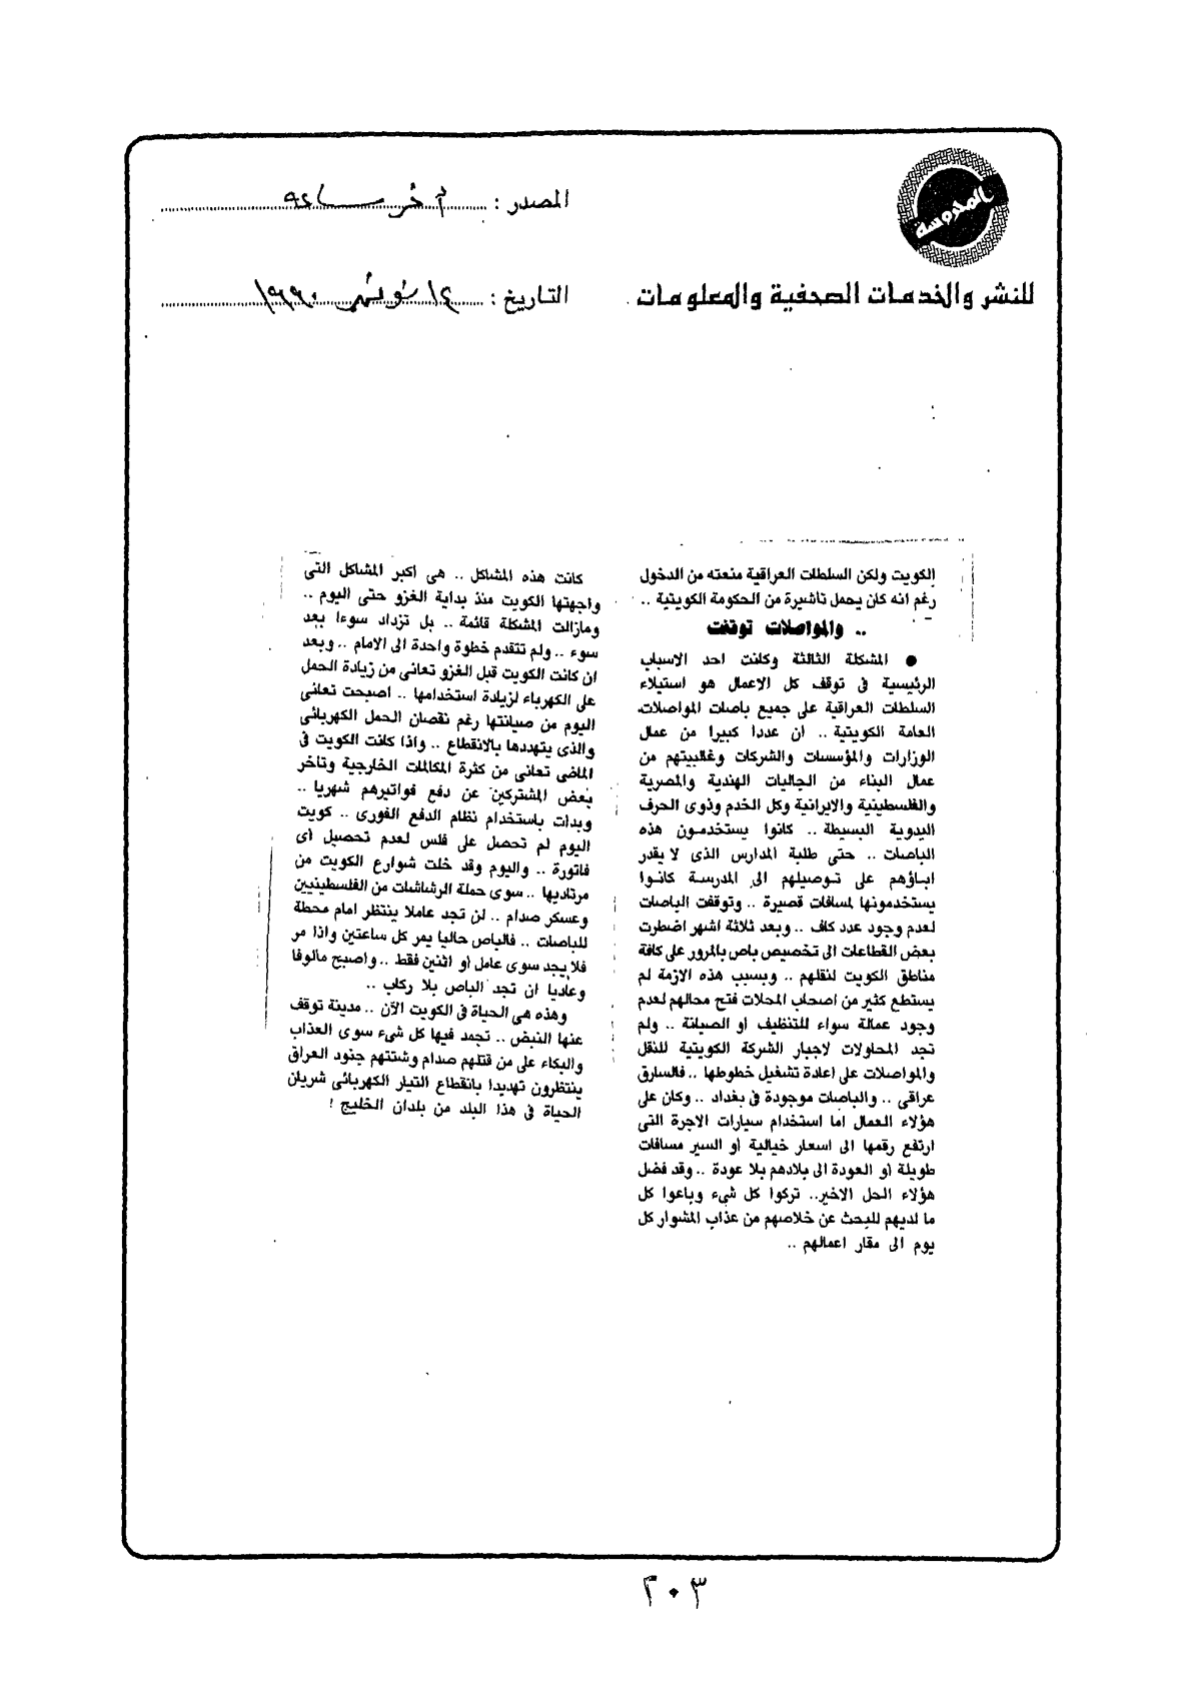 المحروسة
للنشر والخدمات الصحفية والمعلومات
المصدر : آخر ساعة
التاريخ : ١٤ نوفمبر ١٩٩٠
الكويت ولكن السلطات العراقية منعته من الدخول
رغم انه كان يحمل تأشيرة من الحكومة الكويتية ..
.. والمواصلات توقفت
● المشكلة الثالثة وكانت احد الاسباب
الرئيسية فى توقف كل الاعمال هو استيلاء
السلطات العراقية على جميع باصات المواصلات
العامة الكويتية .. ان عددا كبيرا من عمال
الوزارات والمؤسسات والشركات وغالبيتهم من
عمال البناء من الجاليات الهندية والمصرية
والفلسطينية والايرانية وكل الخدم وذوى الحرف
اليدوية البسيطة .. كانوا يستخدمون هذه
الباصات .. حتى طلبة المدارس الذى لا يقدر
اباؤهم على توصيلهم الى المدرسة كانوا
يستخدمونها لمسافات قصيرة .. وتوقفت الباصات
لعدم وجود عدد كاف .. وبعد ثلاثة اشهر اضطرت
بعض القطاعات الى تخصيص باص بالمرور على كافة
مناطق الكويت لنقلهم .. وبسبب هذه الازمة لم
يستطع كثير من اصحاب المحلات فتح محالهم لعدم
وجود عمالة سواء للتنظيف أو الصيانة .. ولم
تجد المحاولات لاجبار الشركة الكويتية للنقل
والمواصلات على اعادة تشغيل خطوطها .. فالسارق
عراقى .. والباصات موجودة فى بغداد .. وكان على
هؤلاء العمال اما استخدام سيارات الاجرة التى
ارتفع رقمها الى اسعار خيالية أو السير مسافات
طويلة أو العودة الى بلادهم بلا عودة .. وقد فضل
هؤلاء الحل الاخير.. تركوا كل شىء وباعوا كل
ما لديهم للبحث عن خلاصهم من عذاب المشوار كل
يوم الى مقار اعمالهم ..
كانت هذه المشاكل .. هى اكبر المشاكل التى
واجهتها الكويت منذ بداية الغزو حتى اليوم ..
ومازالت المشكلة قائمة .. بل تزداد سوءا بعد
سوء .. ولم تتقدم خطوة واحدة الى الامام .. وبعد
ان كانت الكويت قبل الغزو تعانى من زيادة الحمل
على الكهرباء لزيادة استخدامها .. اصبحت تعانى
اليوم من صيانتها رغم نقصان الحمل الكهربائى
والذى يتهددها بالانقطاع .. واذا كانت الكويت فى
الماضى تعانى من كثرة المكالمات الخارجية وتأخر
بعض المشتركين عن دفع فواتيرهم شهريا ..
وبدات باستخدام نظام الدفع الفورى .. كويت
اليوم لم تحصل على فلس لعدم تحصيل أى
فاتورة .. واليوم وقد خلت شوارع الكويت من
مرتاديها .. سوى حملة الرشاشات من الفلسطينيين
وعسكر صدام .. لن تجد عاملا ينتظر امام محطة
للباصات .. فالباص حاليا يمر كل ساعتين واذا مر
فلا يجد سوى عامل أو اثنين فقط .. واصبح مألوفا
وعاديا ان تجد الباص بلا ركاب ..
وهذه هى الحياة فى الكويت الآن .. مدينة توقف
عنها النبض .. تجمد فيها كل شىء سوى العذاب
والبكاء على من قتلهم صدام وشتتهم جنود العراق
ينتظرون تهديدا بانقطاع التيار الكهربائى شريان
الحياة فى هذا البلد من بلدان الخليج !
٢٠٣